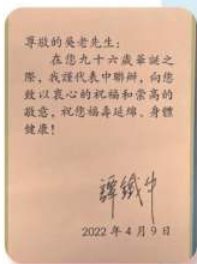 尊敬的吳老先生：
在您九十六歲華誕之
際，我謹代表中聯辦，向您
致以衷心的祝福和崇高的
敬意，祝您福壽延綿、身體
健康！
譚鐵牛
2022年4月9日